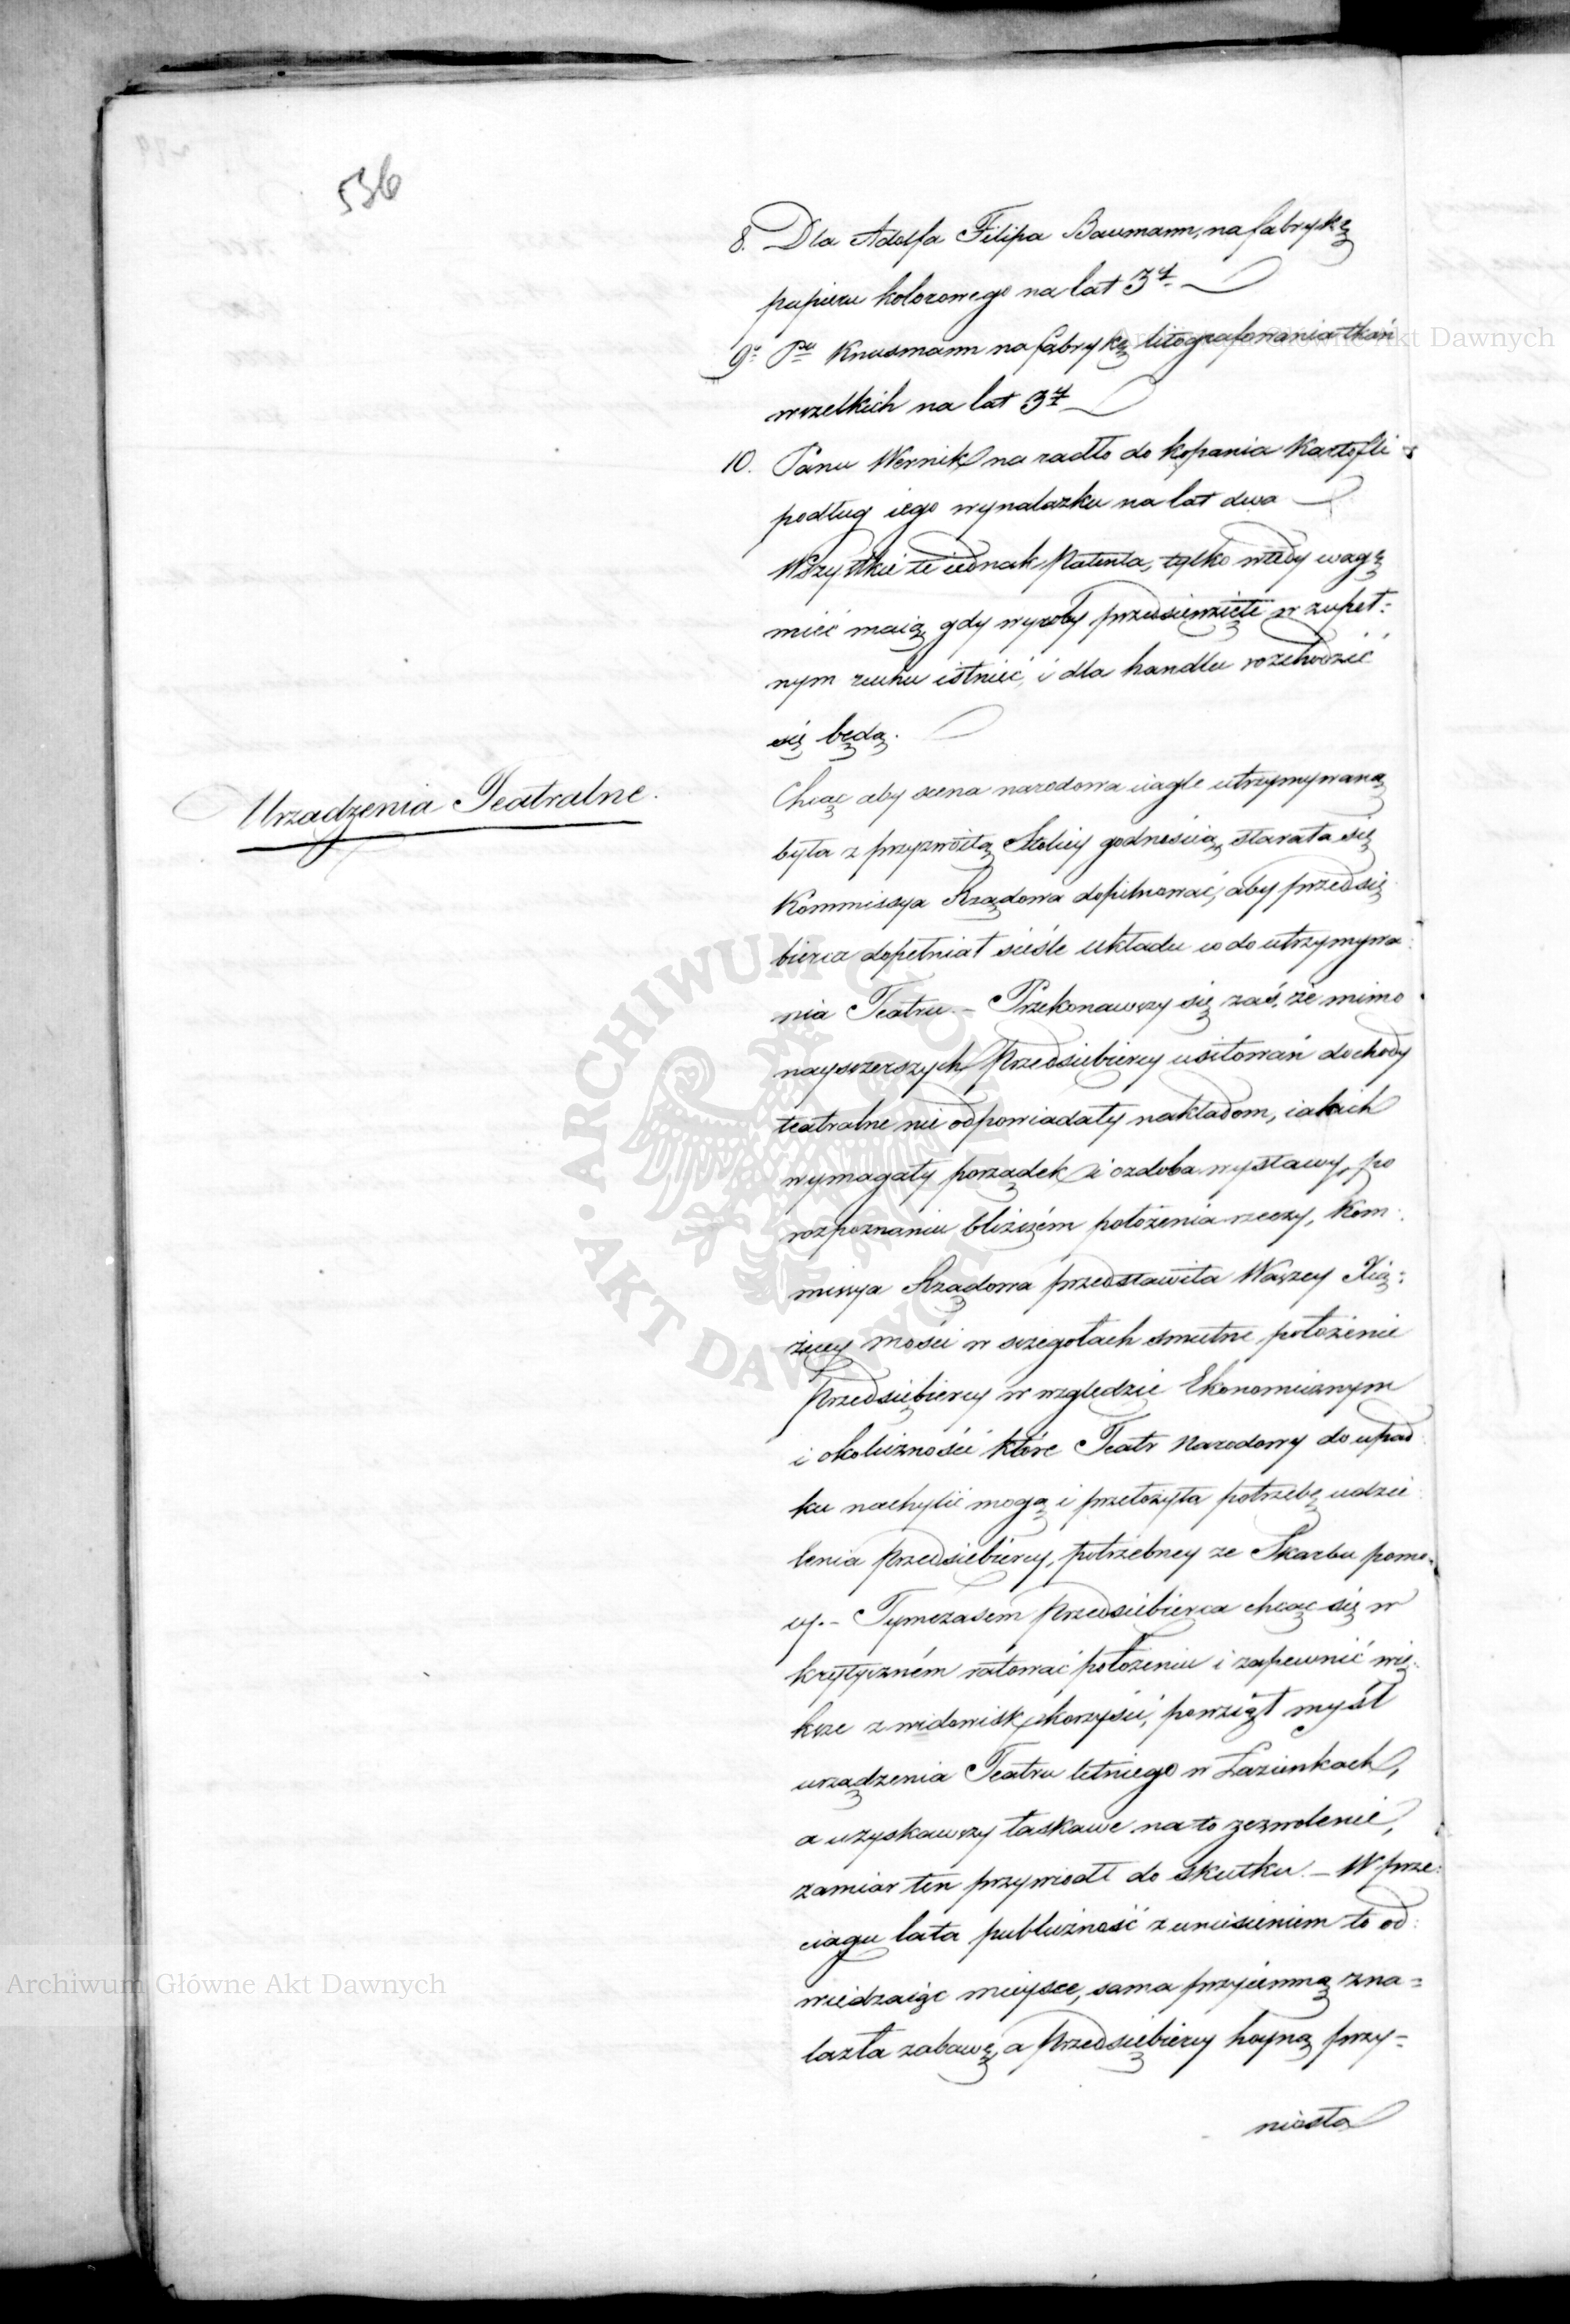 536
8. Dla Adolfa Filipa Baumann, na fabrykę
papieru kolorowego na lat 3.
9º Pu Knusmann na fabrykę litografowania tkań
wszelkich na lat 3.
10. Panu Wernik na radło do kopania Kartofli
podług iego wynalazku na lat dwa
Wszystkie te iednak Patenta, tylko wtedy wagę
mieć maią, gdy wyroby przedsięwzięte w zupeł=
nym ruchu istnieć, i dla handlu rozchodzić
się będą.
Urządzenia Teatralne.
Chcąc aby scena narodowa ciągle utrzymywaną
była z przyzwoitą Stolicy godnością, starała się
Kommissya Rządowa dopilnować, aby przedsię
bierca dopełniał ściśle układu co do utrzymywa:
nia Teatru. – Przekonawszy się zaś, że mimo
nayszczerszych Przedsiębiercy usiłowań dochody
teatralne nie odpowiadały nakładom, iakich
wymagały porządek i ozdoba wystawy, po
rozpoznaniu bliższém położenia rzeczy, Kom:
missya Rządowa przedstawiła Waszey Xią:
żęcey Mości w szczegołach smutne położenie
Przedsiębiercy w względzie Ekonomicznym
i okoliczności które Teatr Narodowy do upad
ku nachylić mogą i przełożyła potrzebę udzie
lenia Przedsiębiercy, potrzebney ze Skarbu pomo:
cy. – Tymczasem Przedsiębierca chcąc się w
krytyczném ratować położeniu i zapewnić wię:
ksze z widowisk korzyści, powziął myśl
urządzenia Teatru letniego w Łazienkach,
a uzyskawszy łaskawe na to zezwolenie,
zamiar ten przywiodł do skutku. – W prze:
ciągu lata publiczność z uniesieniem to od:
wiedzaiąc mieysce, sama przyiemną zna=
lazła zabawę, a Przedsiębiercy hoyną przy=
niosła
Archiwum Główne Akt Dawnych
Archiwum Główne Akt Dawnych
ARCHIWUM GŁÓWNE • AKT DAWNYCH •